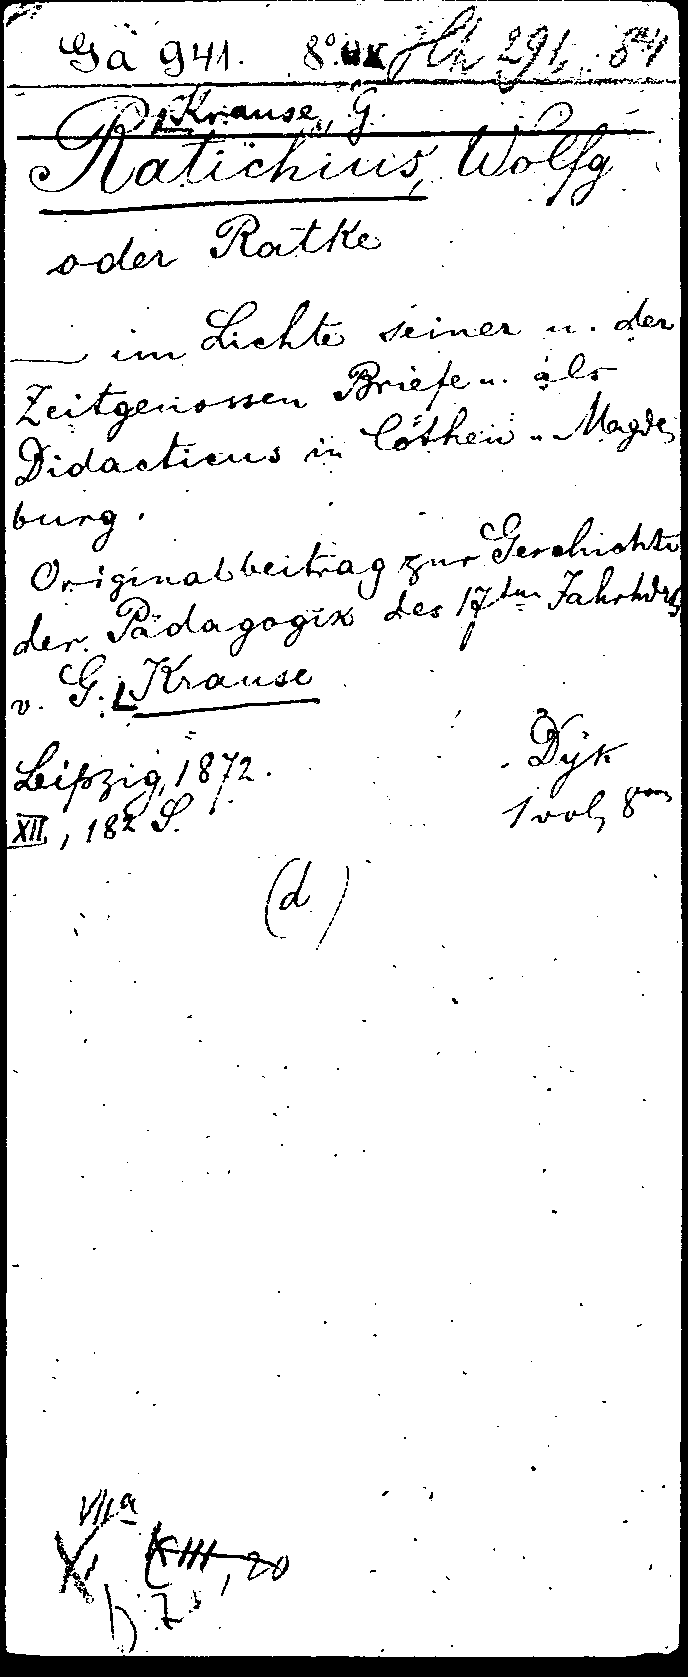 Gä 941. 8°
Krause, G.
Ratichius, Wolfg
oder Ratke
— im Lichte seiner u. der
Zeitgenossen Briefe u. als
Didacticus in Cöthen u. Magde
burg.
Originalbeitrag zur Geschichte
der Pädagogik des 17ten Jahrhdrts
v. G. Krause
Leipzig, 1872. Dyk
XII, 182 S. 1 vol, 8vo
(d)
VIIa
XIII, 20